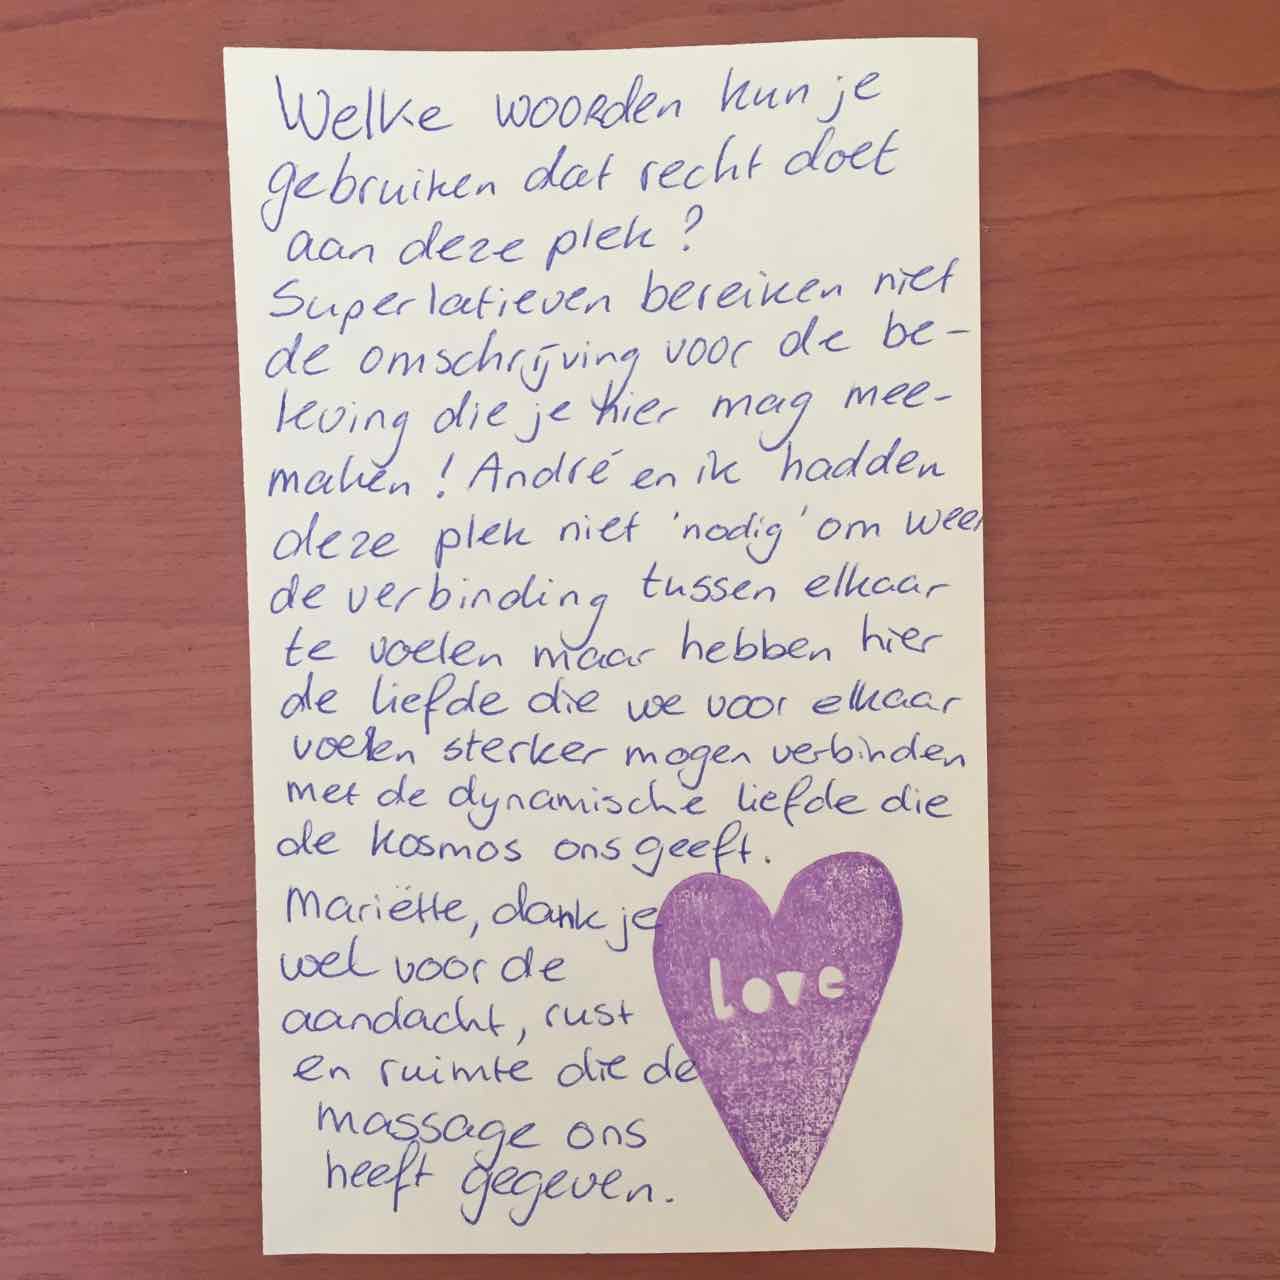 Welke woorden kun je
gebruiken dat recht doet
aan deze plek?
Superlatieven bereiken niet
de omschrijving voor de be-
leving die je hier mag mee-
maken! André en ik hadden
deze plek niet 'nodig' om weer
de verbinding tussen elkaar
te voelen maar hebben hier
de liefde die we voor elkaar
voelen sterker mogen verbinden
met de dynamische liefde die
de kosmos ons geeft.
Mariëtte, dank je
wel voor de
aandacht, rust
en ruimte die de
massage ons
heeft gegeven.
love